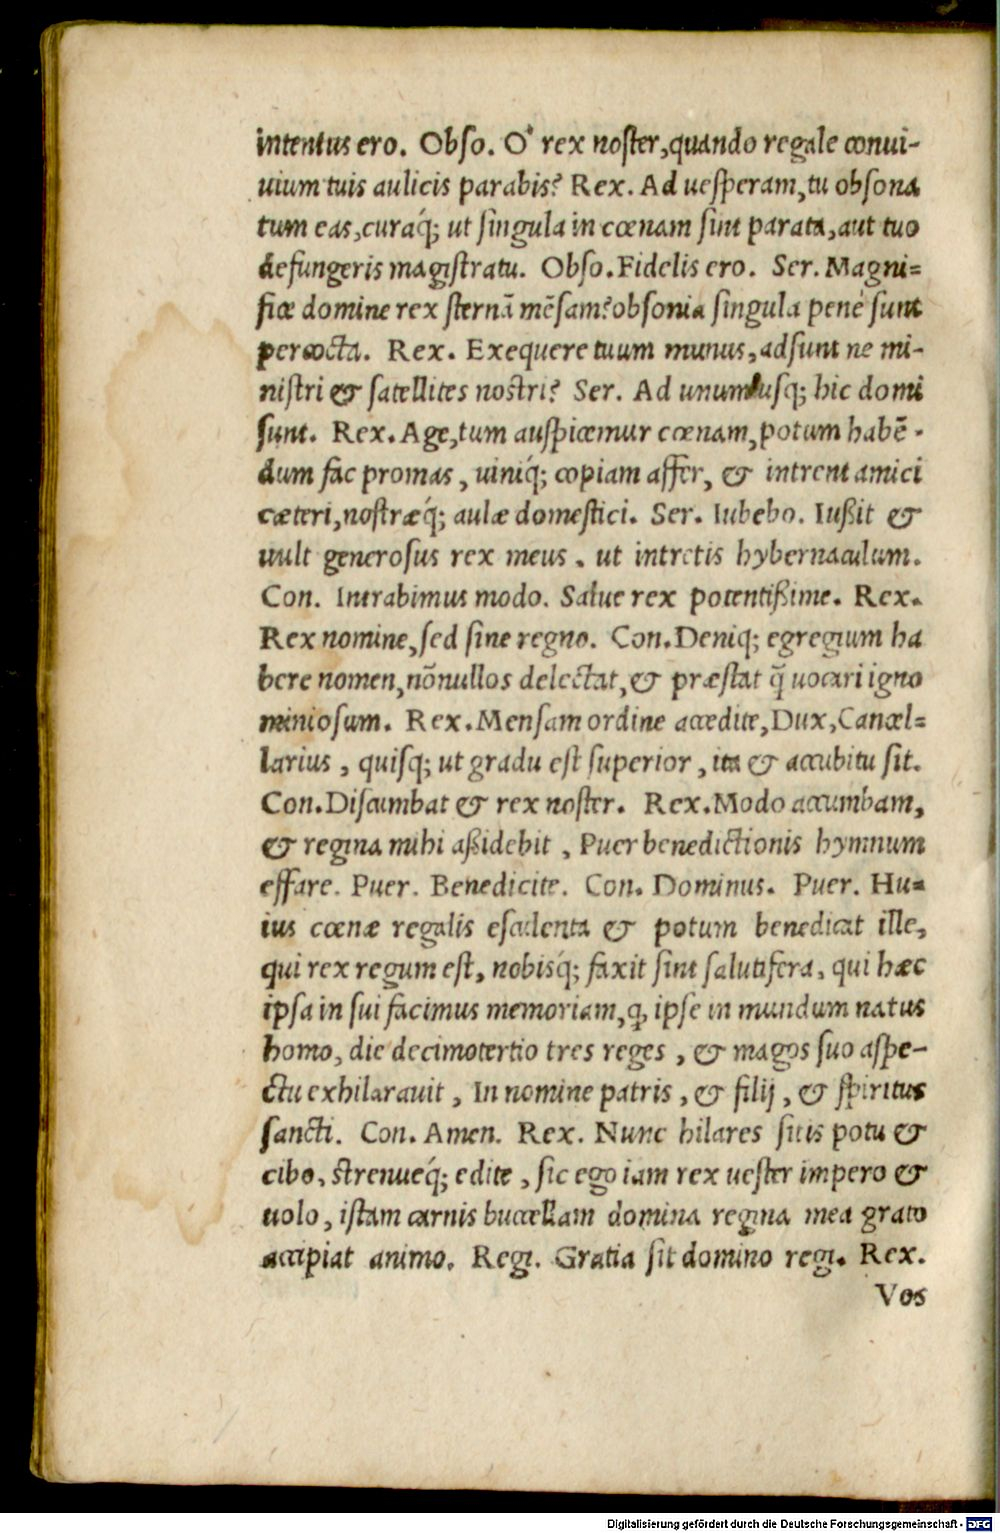 intentus ero. Obso. O' rex noster, quando regale conui-
uium tuis aulicis parabis? Rex. Ad uesperam, tu obsona
tum eas, curaq́; ut singula in cœnam sint parata, aut tuo
defungeris magistratu. Obso. Fidelis ero. Ser. Magni=
fice domine rex sternã mẽsam? obsonia singula penè sunt
percocta. Rex. Exequere tuum munus, adsunt ne mi-
nistri & satellites nostri? Ser. Ad unum usq; hic domi
sunt. Rex. Age, tum auspicemur cœnam, potum habẽ-
dum fac promas, uiniq́; copiam affer, & intrent amici
cæteri, nostræq́; aulæ domestici. Ser. Iubebo. Iußit &
uult generosus rex meus, ut intretis hybernaculum.
Con. Intrabimus modo. Salue rex potentißime. Rex.
Rex nomine, sed sine regno. Con. Deniq; egregium ha
bere nomen, nõnullos delectat, & præstat q̃ uocari igno
miniosum. Rex. Mensam ordine accedite, Dux, Cancel=
larius, quisq; ut gradu est superior, ita & accubitu sit.
Con. Discumbat & rex noster. Rex. Modo accumbam,
& regina mihi aßidebit, Puer benedictionis hymnum
effare. Puer. Benedicite. Con. Dominus. Puer. Hu=
ius cœnæ regalis esculenta & potum benedicat ille,
qui rex regum est, nobisq́; faxit sint salutifera, qui hæc
ipsa in sui facimus memoriam, ꝙ ipse in mundum natus
homo, die decimotertio tres reges, & magos suo aspe-
ctu exhilarauit, In nomine patris, & filij, & spiritus
sancti. Con. Amen. Rex. Nunc hilares sitis potu &
cibo, strenueq́; edite, sic ego iam rex uester impero &
uolo, istam carnis buccellam domina regina mea grato
accipiat animo. Regi. Gratia sit domino regi. Rex.
Vos
Digitalisierung gefördert durch die Deutsche Forschungsgemeinschaft - DFG